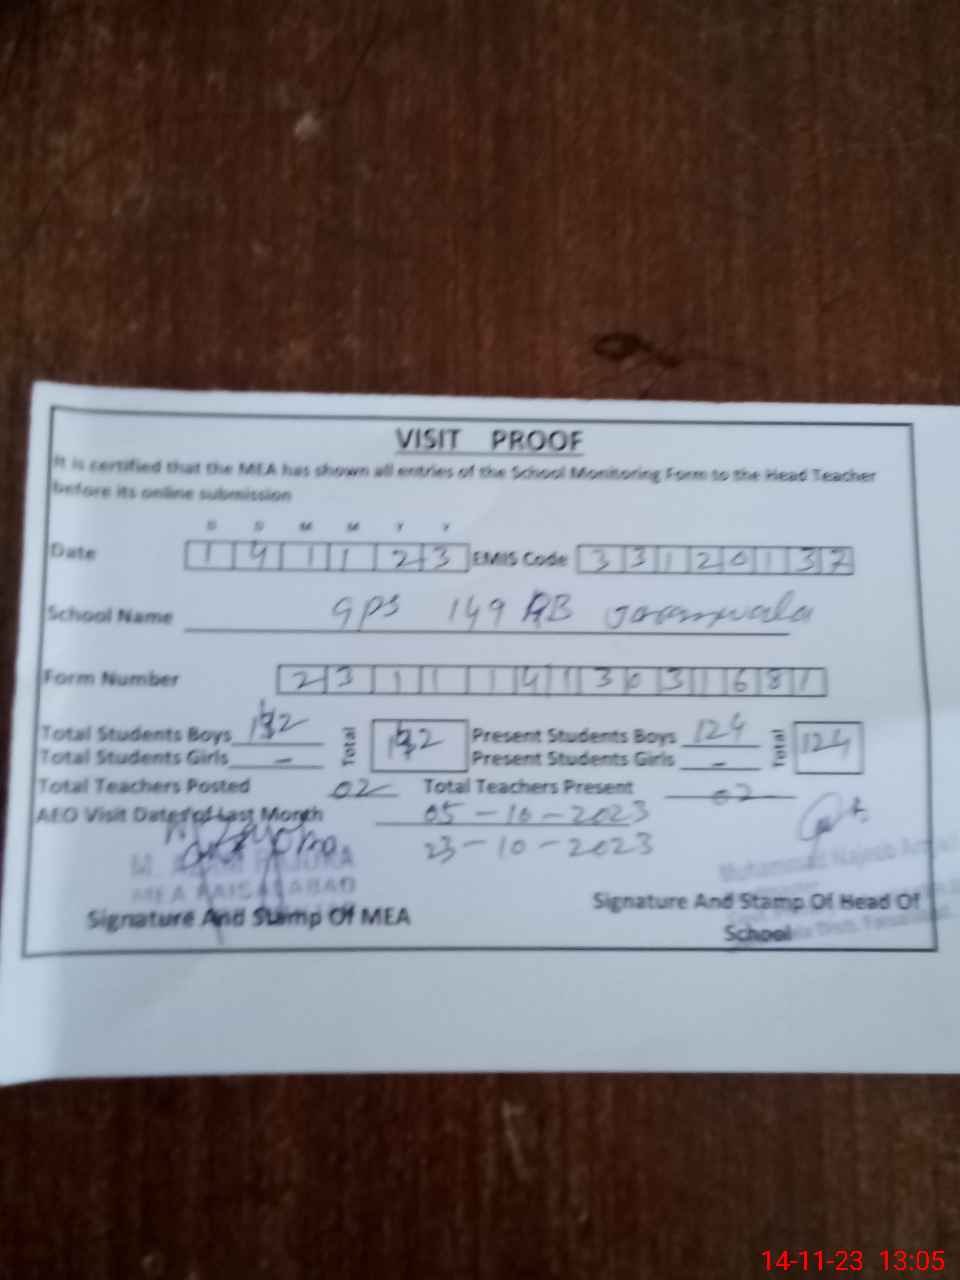 VISIT PROOF
It is certified that the MEA has shown all entries of the School Monitoring Form to the Head Teacher
before its online submission
D D M M Y Y
Date 1 4 1 1 2 3 EMIS Code 3 3 1 2 0 1 3 7
School Name GPS 149 RB
Form Number 2 3 1 1 1 4 1 3 0 3 1 6 8 1
Total Students Boys 132 Total 132 Present Students Boys 124 Total 124
Total Students Girls - Present Students Girls -
Total Teachers Posted 02 Total Teachers Present 02
AEO Visit Dates of Last Month 05-10-2023
23-10-2023
MEA FAISALABAD
Muhammad Najeeb
Signature And Stamp Of MEA
Signature And Stamp Of Head Of
School
14-11-23 13:05